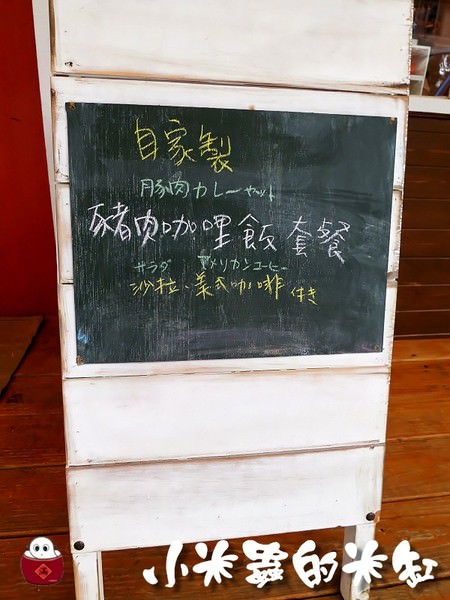 自家製
豚肉カレーセット
豬肉咖哩飯套餐
サラダ アメリカンコーヒー
沙拉、美式咖啡 付き
小米蟲的米缸